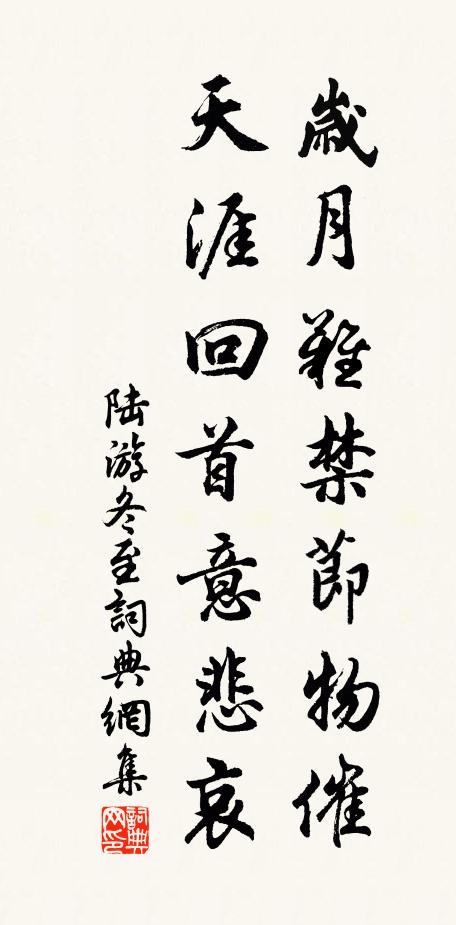 歲月難禁節物催
天涯回首意悲哀
陆游冬至詞典網集
詞典网印